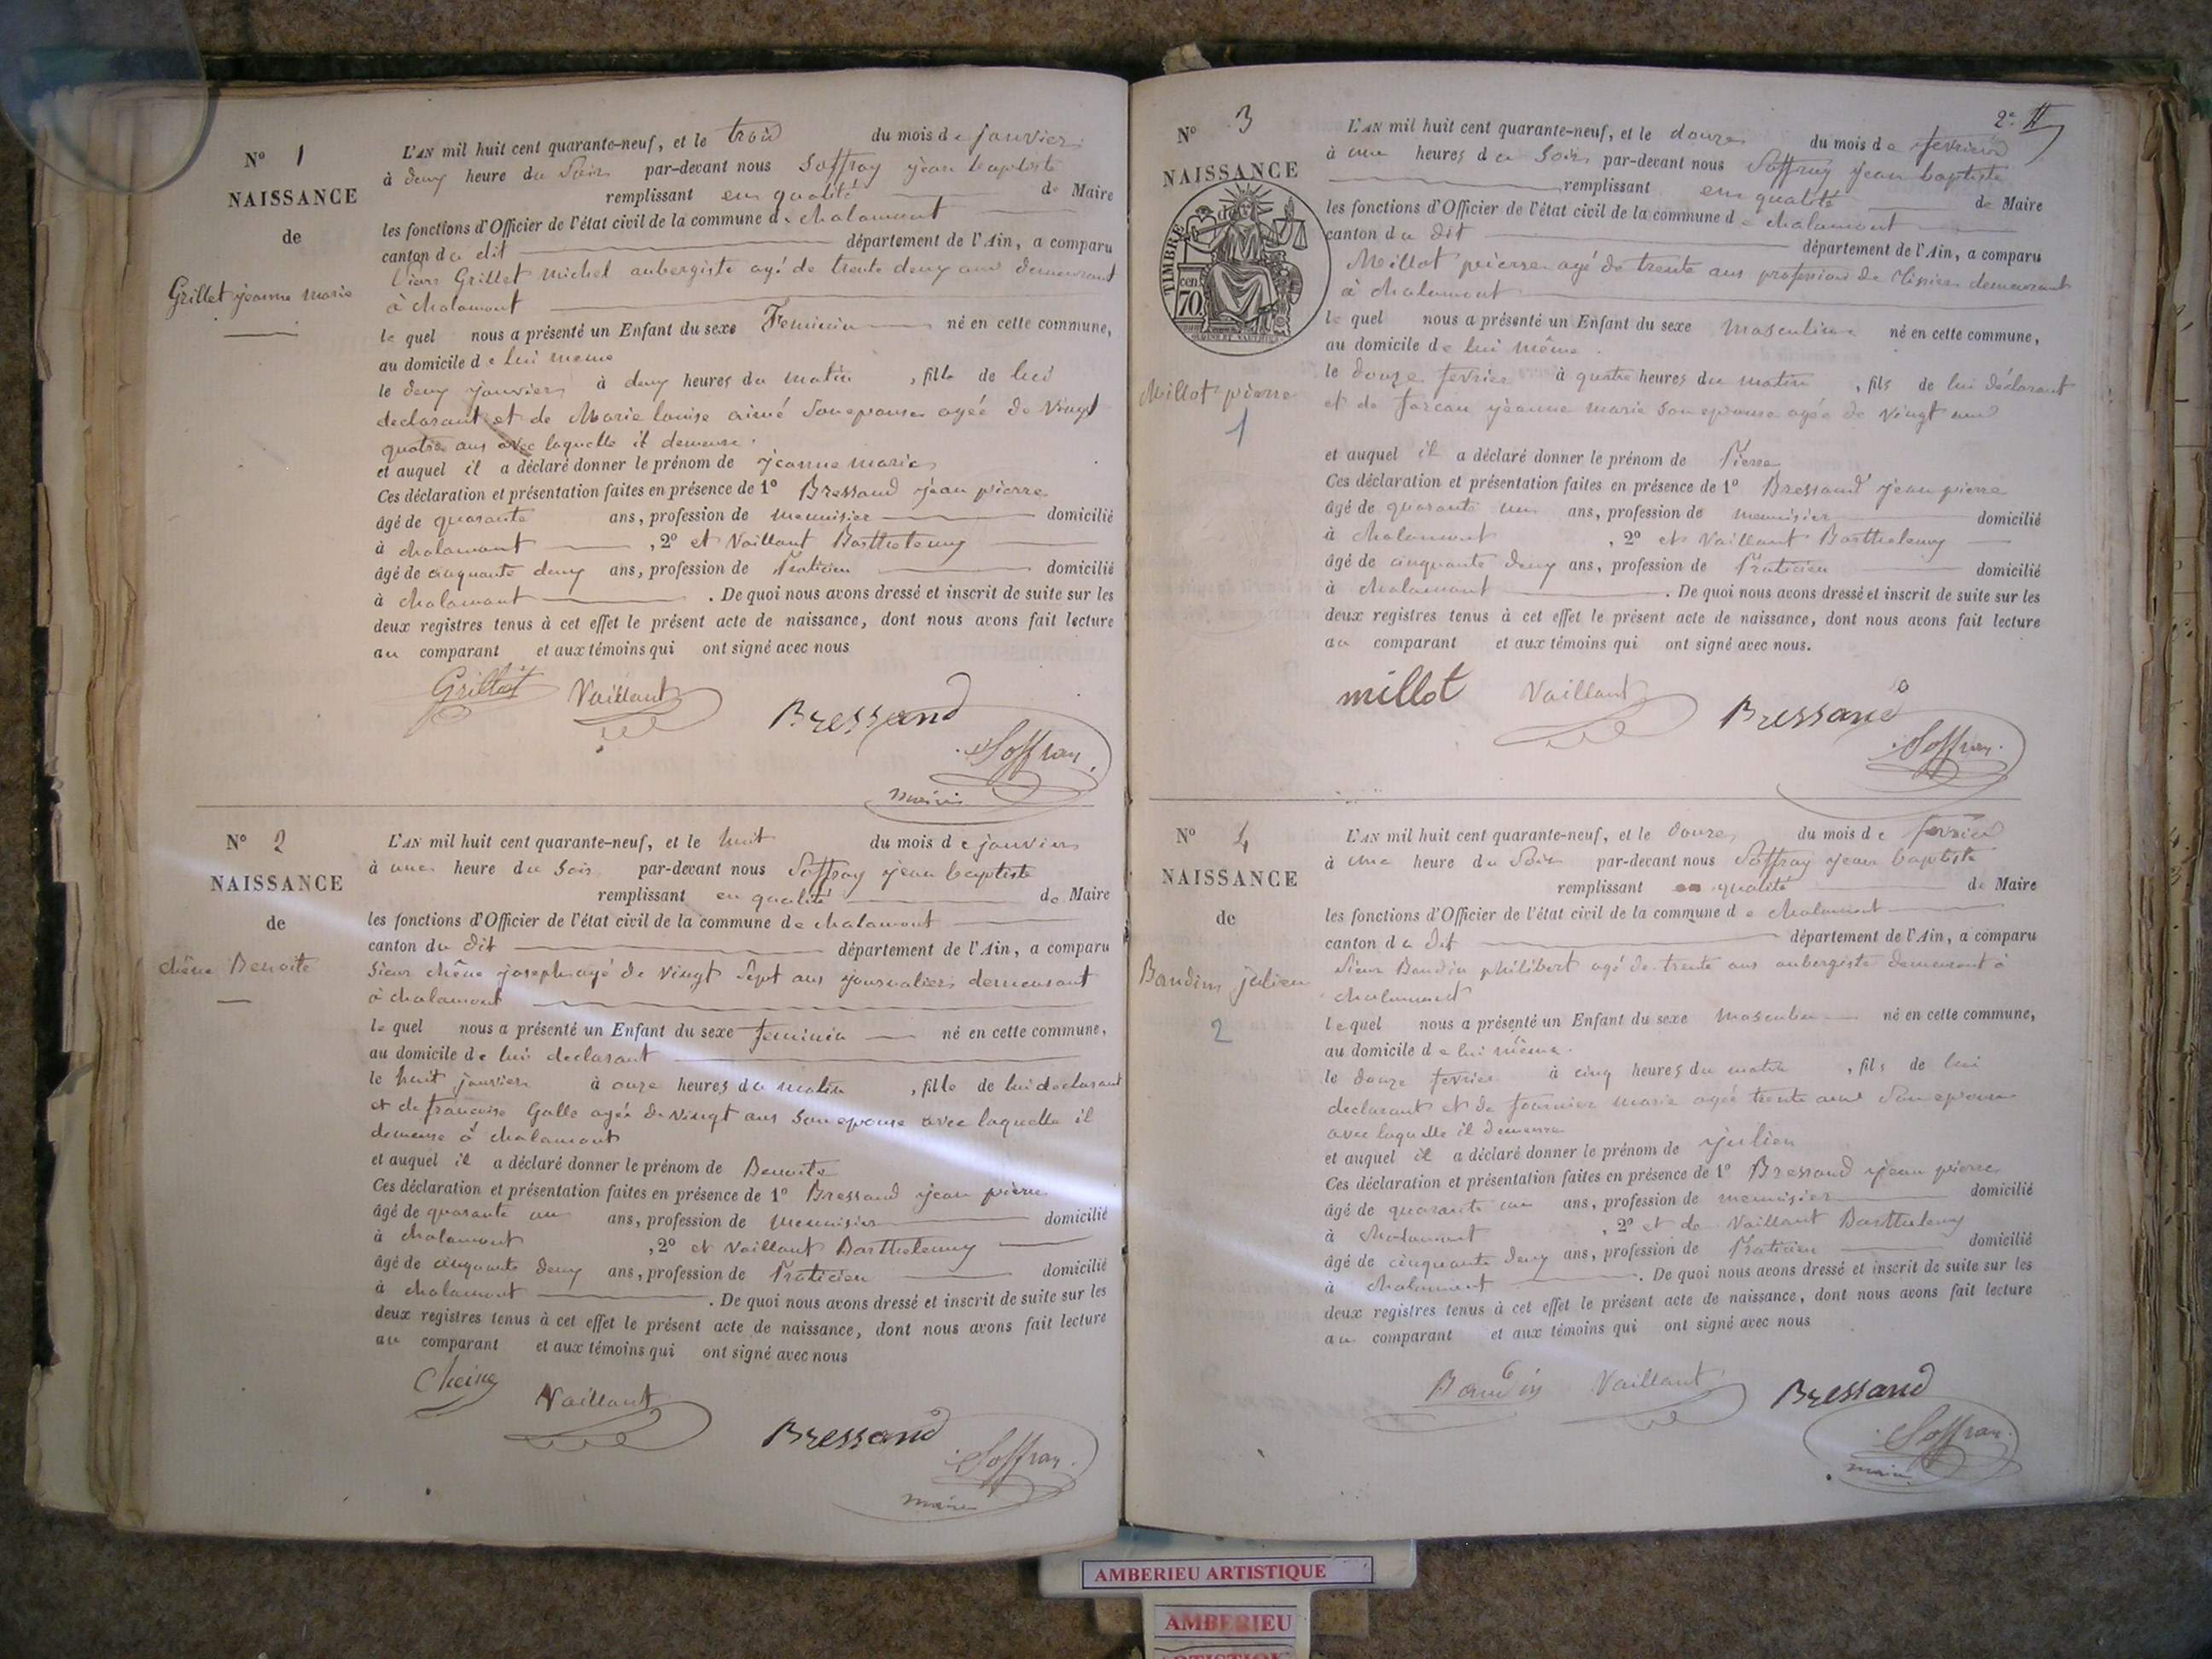 N° 1
NAISSANCE
de
Grillet jeanne marie
L'AN mil huit cent quarante-neuf, et le trois du mois de janvier
à deux heure du Soir par-devant nous Soffray jean baptiste
remplissant en qualité de Maire
les fonctions d'Officier de l'état civil de la commune de chalamont
canton du dit département de l'Ain, a comparu
Sieur Grillet michel aubergiste agé de trente deux ans demeurant
à chalamont
le quel nous a présenté un Enfant du sexe Feminin né en cette commune,
au domicile de lui meme
le deux janvier à deux heures du matin , fille de lui
declarant et de Marie louise aimé son epouse agée de vingt
quatre ans avec laquelle il demeure.
et auquel il a déclaré donner le prénom de jeanne marie
Ces déclaration et présentation faites en présence de 1° Bressand jean pierre
âgé de quarante ans, profession de menuisier domicilié
à chalamont , 2° et Vaillant Barthelemy
âgé de cinquante deux ans, profession de Praticien domicilié
à chalamont . De quoi nous avons dressé et inscrit de suite sur les
deux registres tenus à cet effet le présent acte de naissance, dont nous avons fait lecture
au comparant et aux témoins qui ont signé avec nous
Grillet Vaillant Bressand
Soffray
maire
N° 2
NAISSANCE
de
chêne Benoite
L'AN mil huit cent quarante-neuf, et le huit du mois de janvier
à une heure du Soir par-devant nous Soffray jean baptiste
remplissant en qualité de Maire
les fonctions d'Officier de l'état civil de la commune de chalamont
canton du dit département de l'Ain, a comparu
Sieur chêne joseph agé de vingt Sept ans journalier demeurant
à chalamont
le quel nous a présenté un Enfant du sexe feminin né en cette commune,
au domicile de lui declarant
le huit janvier à onze heures du matin , fille de lui declarant
et de francoise Galle agée de vingt ans son epouse avec laquelle il
demeure à chalamont
et auquel il a déclaré donner le prénom de Benoite
Ces déclaration et présentation faites en présence de 1° Bressand jean pierre
âgé de quarante un ans, profession de menuisier domicilié
à chalamont , 2° et Vaillant Barthelemy
âgé de cinquante deux ans, profession de Praticien domicilié
à chalamont . De quoi nous avons dressé et inscrit de suite sur les
deux registres tenus à cet effet le présent acte de naissance, dont nous avons fait lecture
au comparant et aux témoins qui ont signé avec nous
Vaillant
Bressand
Soffray
maire
2e
N° 3
NAISSANCE
TIMBRE
70 cen
Millot pierre
1
L'AN mil huit cent quarante-neuf, et le douze du mois de fevrier
à une heures du Soir par-devant nous Soffray jean baptiste
remplissant en qualité de Maire
les fonctions d'Officier de l'état civil de la commune de chalamont
canton du dit département de l'Ain, a comparu
Millot pierre agé de trente ans profession de demeurant
à chalamont
le quel nous a présenté un Enfant du sexe masculin né en cette commune,
au domicile de lui même.
le douze fevrier à quatre heures du matin , fils de lui déclarant
et de jeanne marie son epouse agée de vingt
et auquel il a déclaré donner le prénom de Pierre
Ces déclaration et présentation faites en présence de 1° Bressand jean pierre
âgé de quarante un ans, profession de menuisier domicilié
à chalamont , 2° et Vaillant Barthelemy
âgé de cinquante deux ans, profession de Praticien domicilié
à chalamont . De quoi nous avons dressé et inscrit de suite sur les
deux registres tenus à cet effet le présent acte de naissance, dont nous avons fait lecture
au comparant et aux témoins qui ont signé avec nous.
millot Vaillant Bressand
Soffray
N° 4
NAISSANCE
de
Baudin julien
2
L'AN mil huit cent quarante-neuf, et le douze du mois de fevrier
à une heure du Soir par-devant nous Soffray jean baptiste
remplissant en qualité de Maire
les fonctions d'Officier de l'état civil de la commune de chalamont
canton du dit département de l'Ain, a comparu
Sieur Baudin philibert agé de trente ans aubergiste demeurant à
chalamont
le quel nous a présenté un Enfant du sexe masculin né en cette commune,
au domicile de lui même.
le douze fevrier à cinq heures du matin , fils de lui
declarant et de fournier marie agée trente ans son epouse
avec laquelle il demeure
et auquel il a déclaré donner le prénom de julien
Ces déclaration et présentation faites en présence de 1° Bressand jean pierre
âgé de quarante un ans, profession de menuisier domicilié
à chalamont , 2° et de Vaillant Barthelemy
âgé de cinquante deux ans, profession de Praticien domicilié
à chalamont . De quoi nous avons dressé et inscrit de suite sur les
deux registres tenus à cet effet le présent acte de naissance, dont nous avons fait lecture
au comparant et aux témoins qui ont signé avec nous
Baudin Vaillant Bressand
Soffray
maire
AMBERIEU ARTISTIQUE
AMBERIEU
ARTISTIQUE